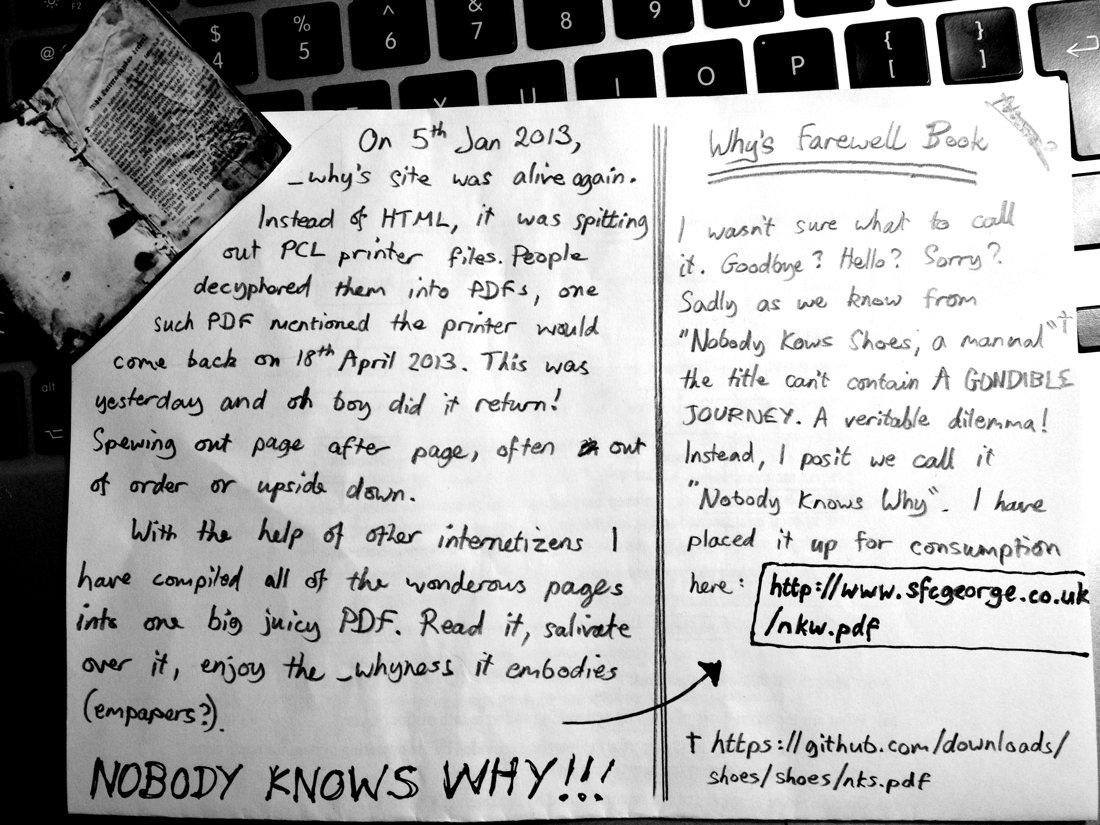 F2
@
$
4
%
5
^
6
&
7
8
9
U
I
O
P
{
[
}
]
alt
On 5th Jan 2013,
_why's site was alive again.
Instead of HTML, it was spitting
out PCL printer files. People
decyphored them into PDFs, one
such PDF mentioned the printer would
come back on 18th April 2013. This was
yesterday and oh boy did it return!
Spewing out page after page, often out
of order or upside down.
With the help of other internetizens I
have compiled all of the wonderous pages
into one big juicy PDF. Read it, salivate
over it, enjoy the _whyness it embodies
(empapers?).
NOBODY KNOWS WHY!!!
Why's Farewell Book
I wasn't sure what to call
it. Goodbye? Hello? Sorry?
Sadly as we know from
"Nobody Kows Shoes, a mannal"†
the title can't contain A GONDIBLE
JOURNEY. A veritable dilemma!
Instead, I posit we call it
"Nobody Knows Why". I have
placed it up for consumption
here: http://www.sfcgeorge.co.uk
/nkw.pdf
† https://github.com/downloads/
shoes/shoes/nks.pdf